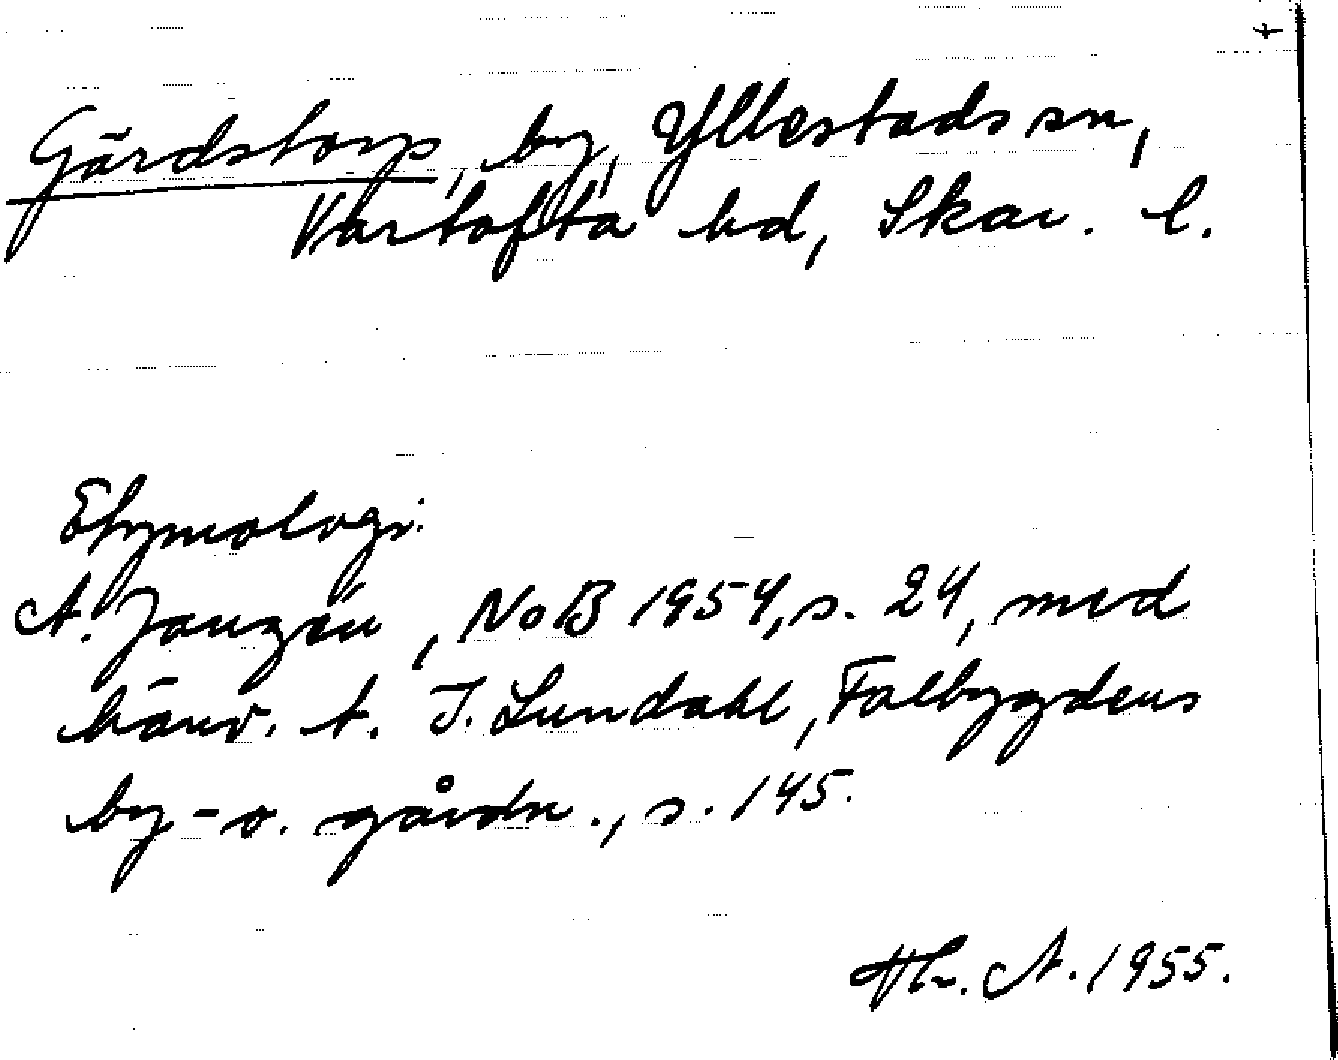 Gärdstorp, by, Yllestads sn,
Vartofta hd, Skar. l.
Etymologi:
A. Janzén, NoB 1954, s. 24, med
hänv. t. I. Lundahl, Falbygdens
by- o. gårdn., s. 145.
Hr. A. 1955.